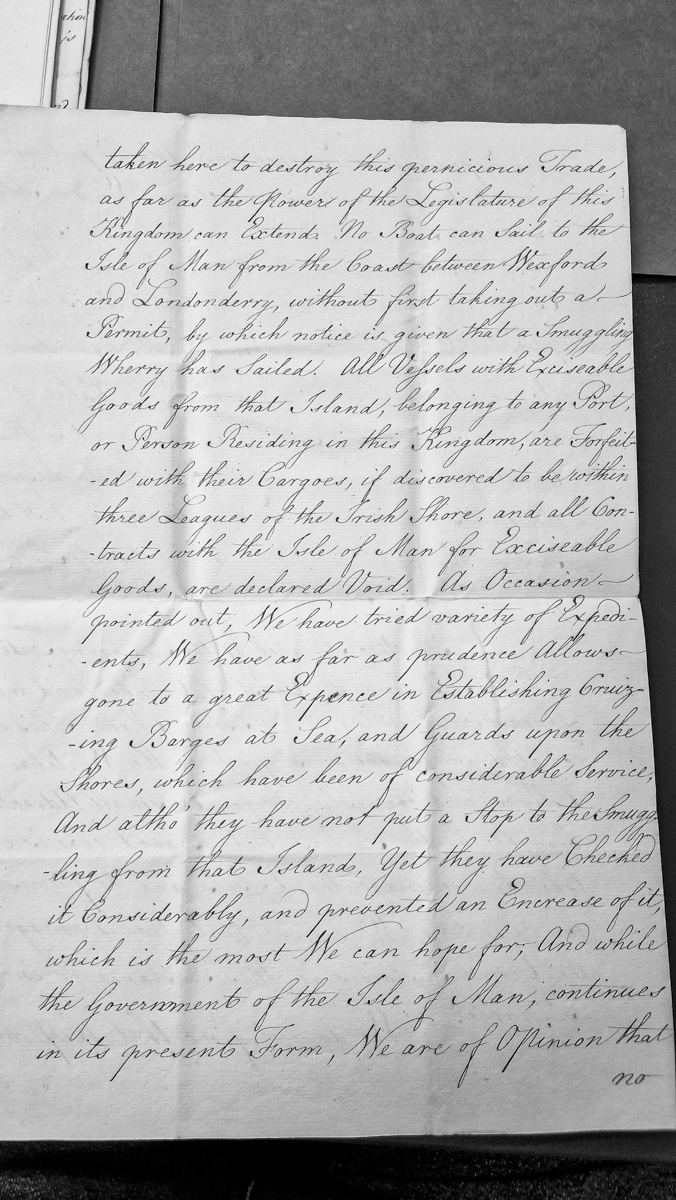 taken here to destroy this pernicious Trade,
as far as the Power of the Legislature of this
Kingdom can Extend. No Boat can Sail to the
Isle of Man from the Coast between Wexford
and Londonderry, without first taking out a
Permit, by which notice is given that a Smuggling
Wherry has Sailed. All Vessels with Exciseable
Goods from that Island, belonging to any Port,
or Person Residing in this Kingdom, are Forfeit-
-ed with their Cargoes, if discovered to be within
three Leagues of the Irish Shore, and all Con-
-tracts with the Isle of Man for Exciseable
Goods, are declared Void. As Occasion
pointed out, We have tried variety of Expedi-
-ents, We have as far as prudence Allows
gone to a great Expence in Establishing Cruiz-
-ing Barges at Sea, and Guards upon the
Shores, which have been of considerable Service,
And altho' they have not put a Stop to the Smugg-
-ling from that Island, Yet they have Checked
it Considerably, and prevented an Encrease of it,
which is the most We can hope for; And while
the Government of the Isle of Man, continues
in its present Form, We are of Opinion that
no